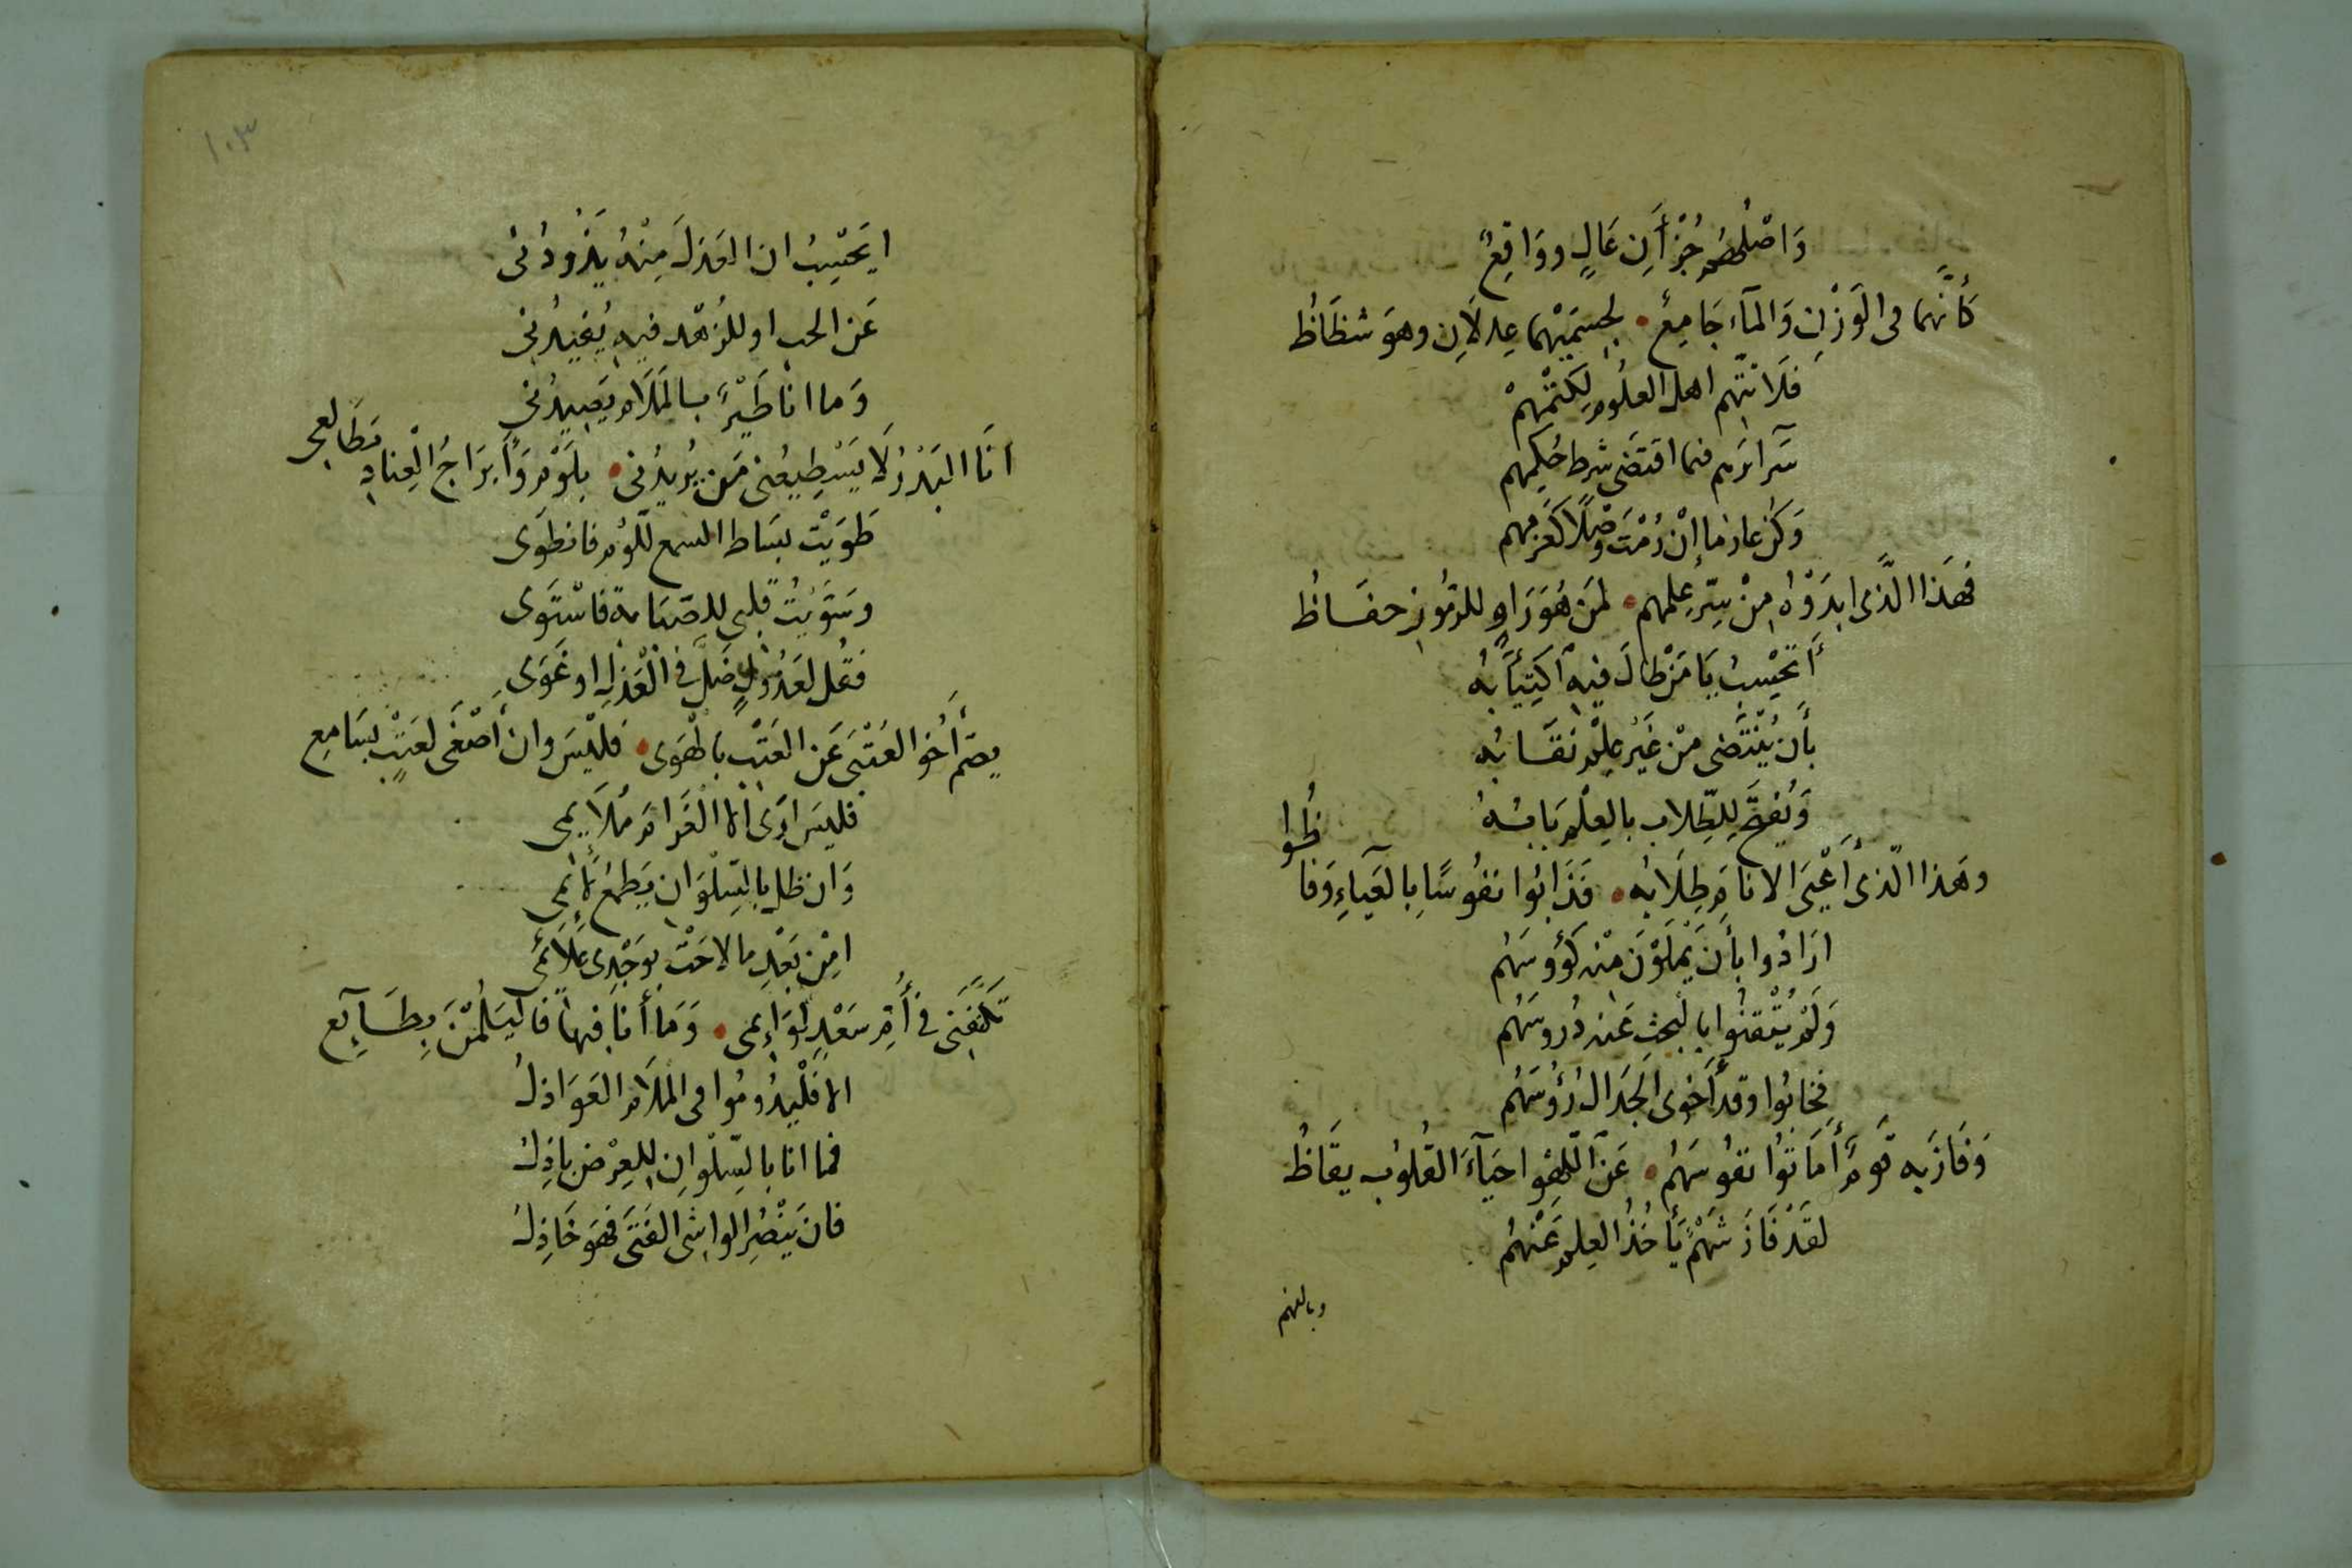 وَاصْلُهُمُ جُزْأَنِ عَالٍ ووَاقِعٌ
كَأَنَّهما فى الوَزْنِ وَالمآءِ جَامِعٌ • لجِسمَيْهما عِدلَانِ وهوَ شظَاظُ
فَلَا تتّهم اهلَ العلُومِ لِكَتْمِهِمْ
سَرآئرَهم فيما اقتَضَى شرط حُكمِهم
وَكُن عازمًا إنْ رُمْتَ وَصْلًا كَعَزْمِهم
فَهَذا الَّذى ابدَوْاُ مِنْ سِرّ علمِهم • لمَن هُوَ رَاوٍ للرّمُوزِ حفَاظُ
أَتَحْسِبُ يَا مَنْ طالَ فيهِ اَكتِيَأبُه
بأَن يُنْتَضى مِنْ غَيْرِ عِلْمٍ نقَابُه
وَيُفتَحَ لِلطّلاب بالعِلْمِ بَابُهُ
وهَذا الّذى أَعْيَى الانامَ طِلَابُه • فَذَابُوا نفُوسًا بالعَيآءِ وَفاظُوا
ارَادُوا بأَن يَمْلَوْنَ منه كُؤُوسَهُم
وَلَمْ يُتْقنُوا بالبحثِ عَنه دُروسَهُم
فخَابُوا وقد أَخوى الجدَال رُؤُسَهُم
وَفَازَ بِه قَومٌ أَمَاتُوا نفُوسَهُم • عَن اللَّهْوِ احيَآءَ القُلُوب يقَاظُ
لقَدْ فَازَ شَهْمٌ يَأخُذُ العِلمَ عَنْهُم
وبالفهم
١٠٣
ايَحْسِبُ ان العَذلَ مِنْهُ يَذُودُنى
عَن الحب او للزهْد فيهِ يُفيدُنى
وَما انا طَيْرٌ بالمَلَامِ يَصِيدُنى
انَا البَدْرُ لَا يَسْطِيعُنى مَن يُريدُنى • بِلَوْمٍ وَأَبرَاجُ الْعِنادِ مَطَالعِى
طَوَيْت بسَاط السمع للَّوْمِ فانطَوَى
وسَوّيْتُ قلبى للصّبَابة فاسْتَوَى
فقُل لعَذُولٍ ضَلَّ فى الْعَذلِ او غَوَى
يصَمّ أَخُو العُتْبَى عَن العَتْبِ بالهَوَى • فليْسَ وان أَصْغَى لعَتْبٍ بسَامِعِ
فليسَ ارَى الا الغَرامَ مُلَايمى
وَان ظل بالسّلْوَان يَطمعُ لَائمِى
امِنْ بَعْدِ ما لاحَتْ بوَجْدى عَلَائمى
تكَلَّفَنى فى أُمّ سَعْدٍ لوَائمى • وَمَا أنا فيها فاليَلُمْنَ بِطَآئِعِ
الا فَلْيدُومُوا فى المَلَامِ العَوَاذلُ
فما انا بالسّلْوانِ للعِرْضِ باذِلُ
فان يَنْصُرِ الواشى الفَتَى فهوَ خَاذِلُ